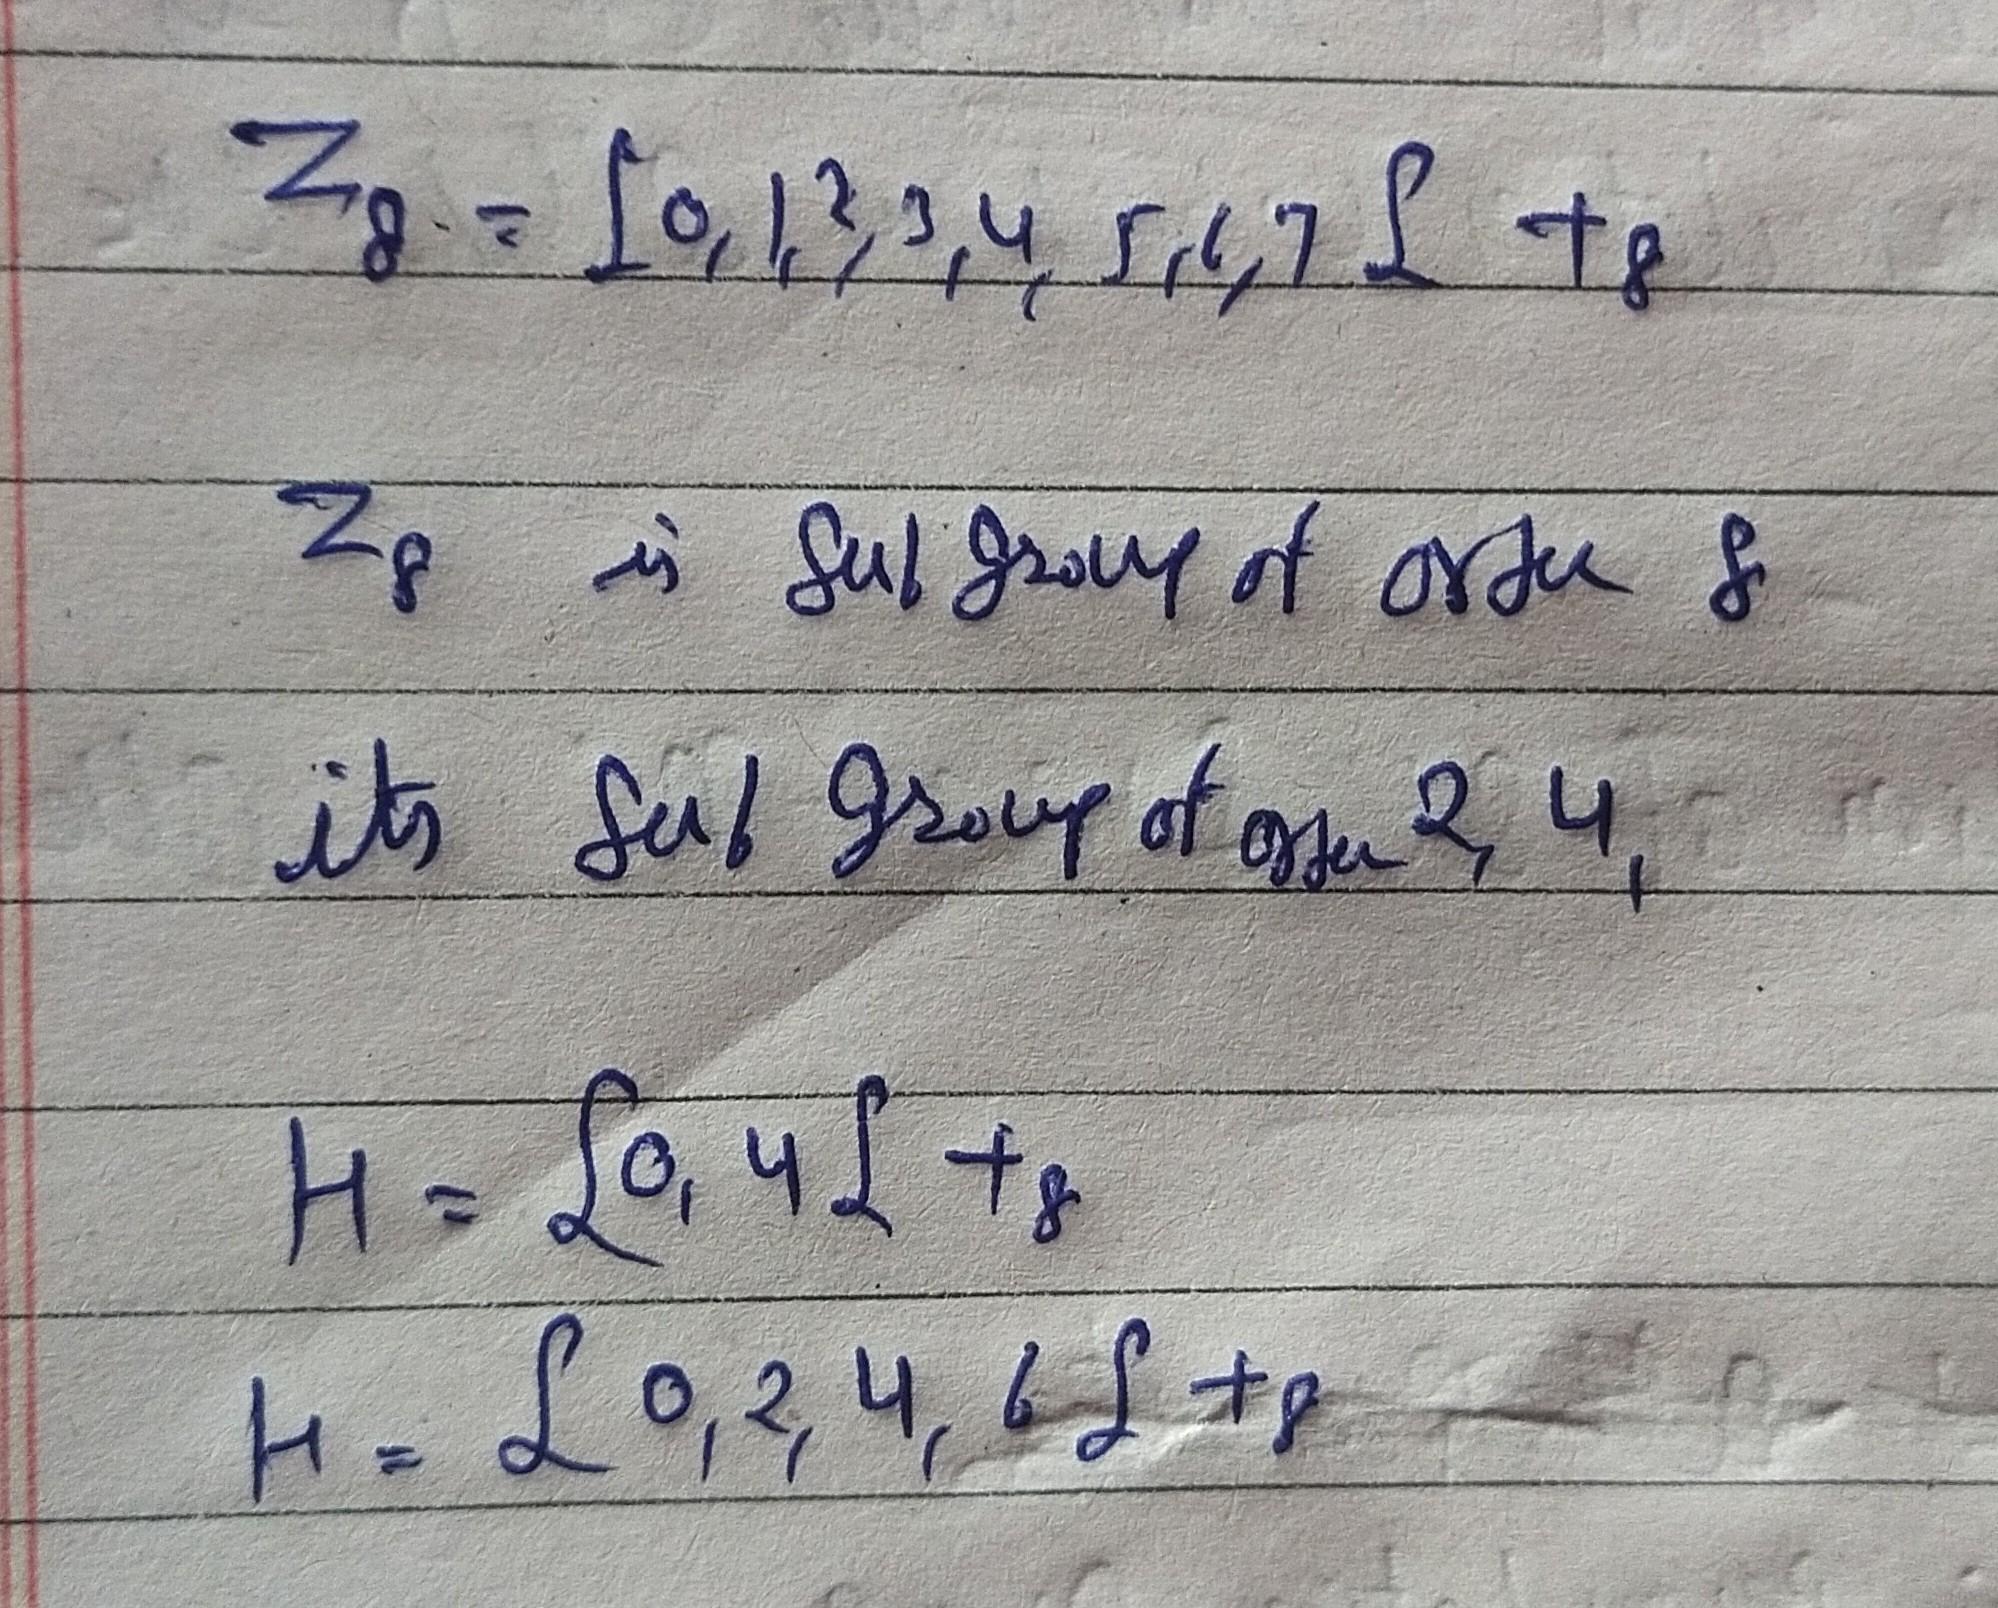 Z₈ = {0, 1, 2, 3, 4, 5, 6, 7} +₈
Z₈ is Sub group of order 8
its Sub group of order 2, 4,
H = {0, 4} +₈
H = {0, 2, 4, 6} +₈